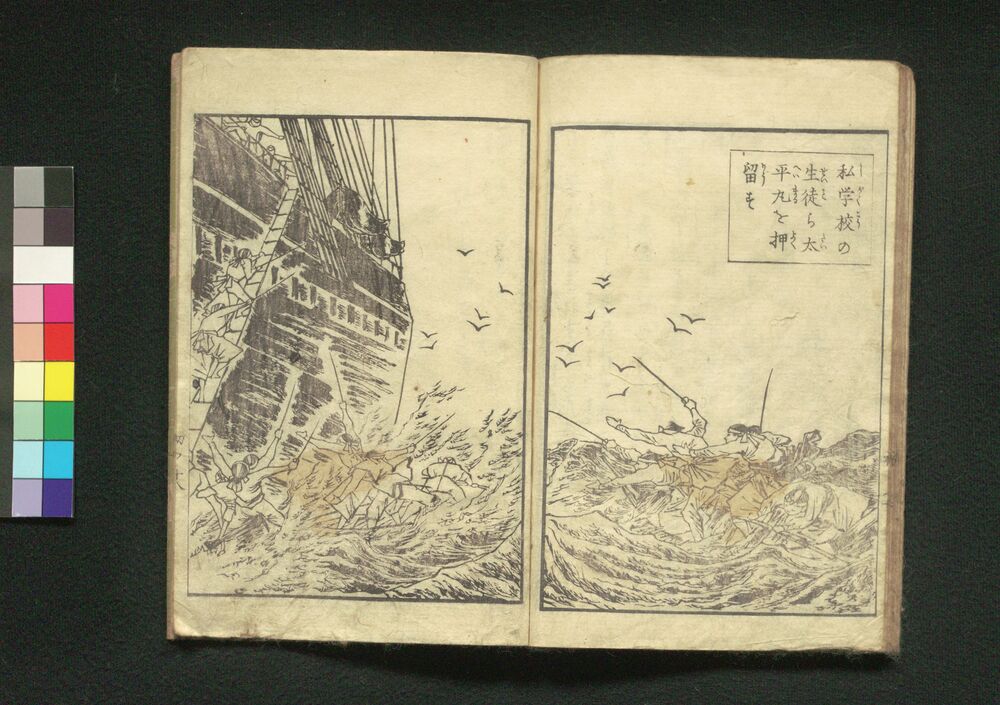 私学校の
生徒ら太
平丸を押
留す